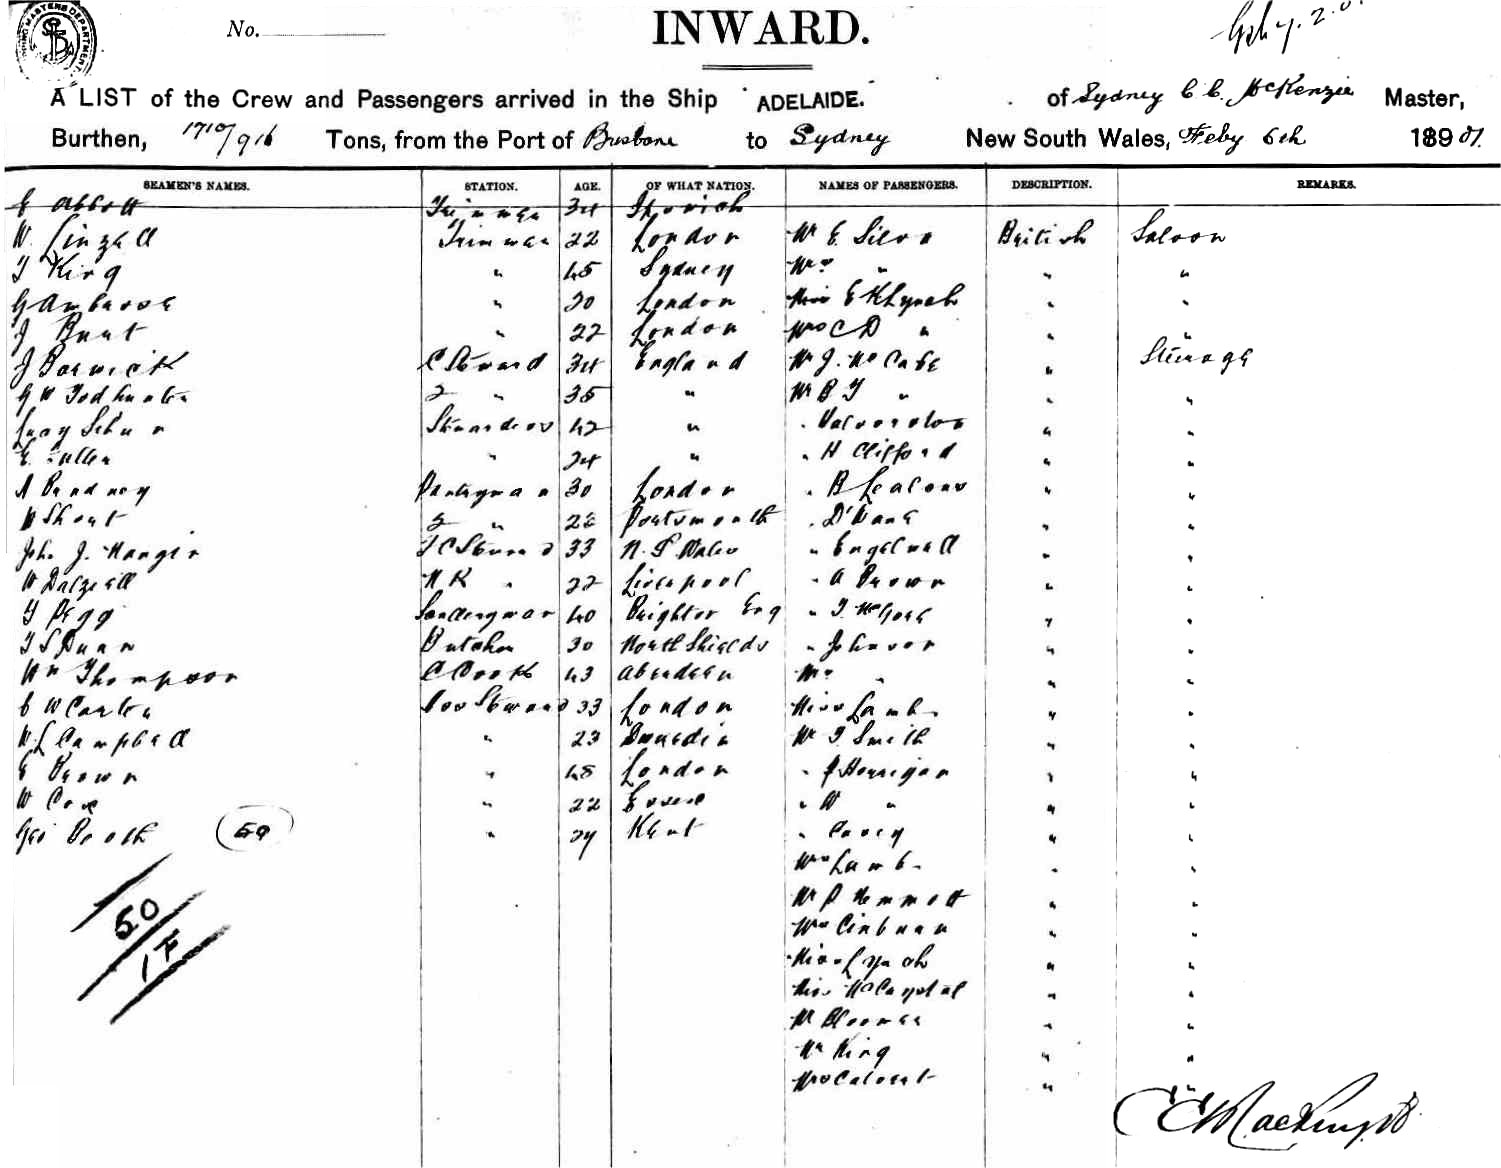 No.
INWARD.
A LIST of the Crew and Passengers arrived in the Ship ADELAIDE. of Sydney C C. McKenzie Master,
Burthen, 1710/916 Tons, from the Port of Brisbane to Sydney New South Wales, Feby 6th 189 01.
SEAMEN'S NAMES. STATION. AGE. OF WHAT NATION. NAMES OF PASSENGERS. DESCRIPTION. REMARKS.
E Abbott Trimmer 34 Ipswich
W. Linzell Trimmer 22 London Mr E. Silva British Saloon
T King " 45 Sydney Mrs " " "
G Ambrose " 30 London Miss E K Lynch " "
J Brut " 22 London Mrs C D " " "
J Borwick C Steward 34 England Mr J. McCabe " Steerage
G W Todhunter 2 " 35 " Mr B T " " "
Lucy Stewardess 42 " " "
E. " 24 " " H Clifford " "
A Pantryman 30 London " B " "
W Short 2 " Portsmouth " " "
John J. Mangin 33 N. S. Wales " " "
W Dalzell " 22 Liverpool " A Brown " "
T Pegg 40 Brighton Eng " T " "
T S Dunn Butcher 30 North Shields " Johnson " "
Wm Thompson C Cook 43 Aberdeen Mrs " " "
C W Carter Steward 33 London Miss Lamb " "
W L Campbell " 23 Dunedin Mr T Smith " "
E Brown " 45 London " J Hourigan " "
W Cox " 22 Essex " W " " "
Geo Booth 50 " 27 Kent " Carey " "
Mrs Lamb " "
Mr P Hemmett " "
Mrs " "
Miss Lynch " "
Miss " "
Mr Bloomer " "
Mr King " "
Mrs Calvert " "
50
1 F